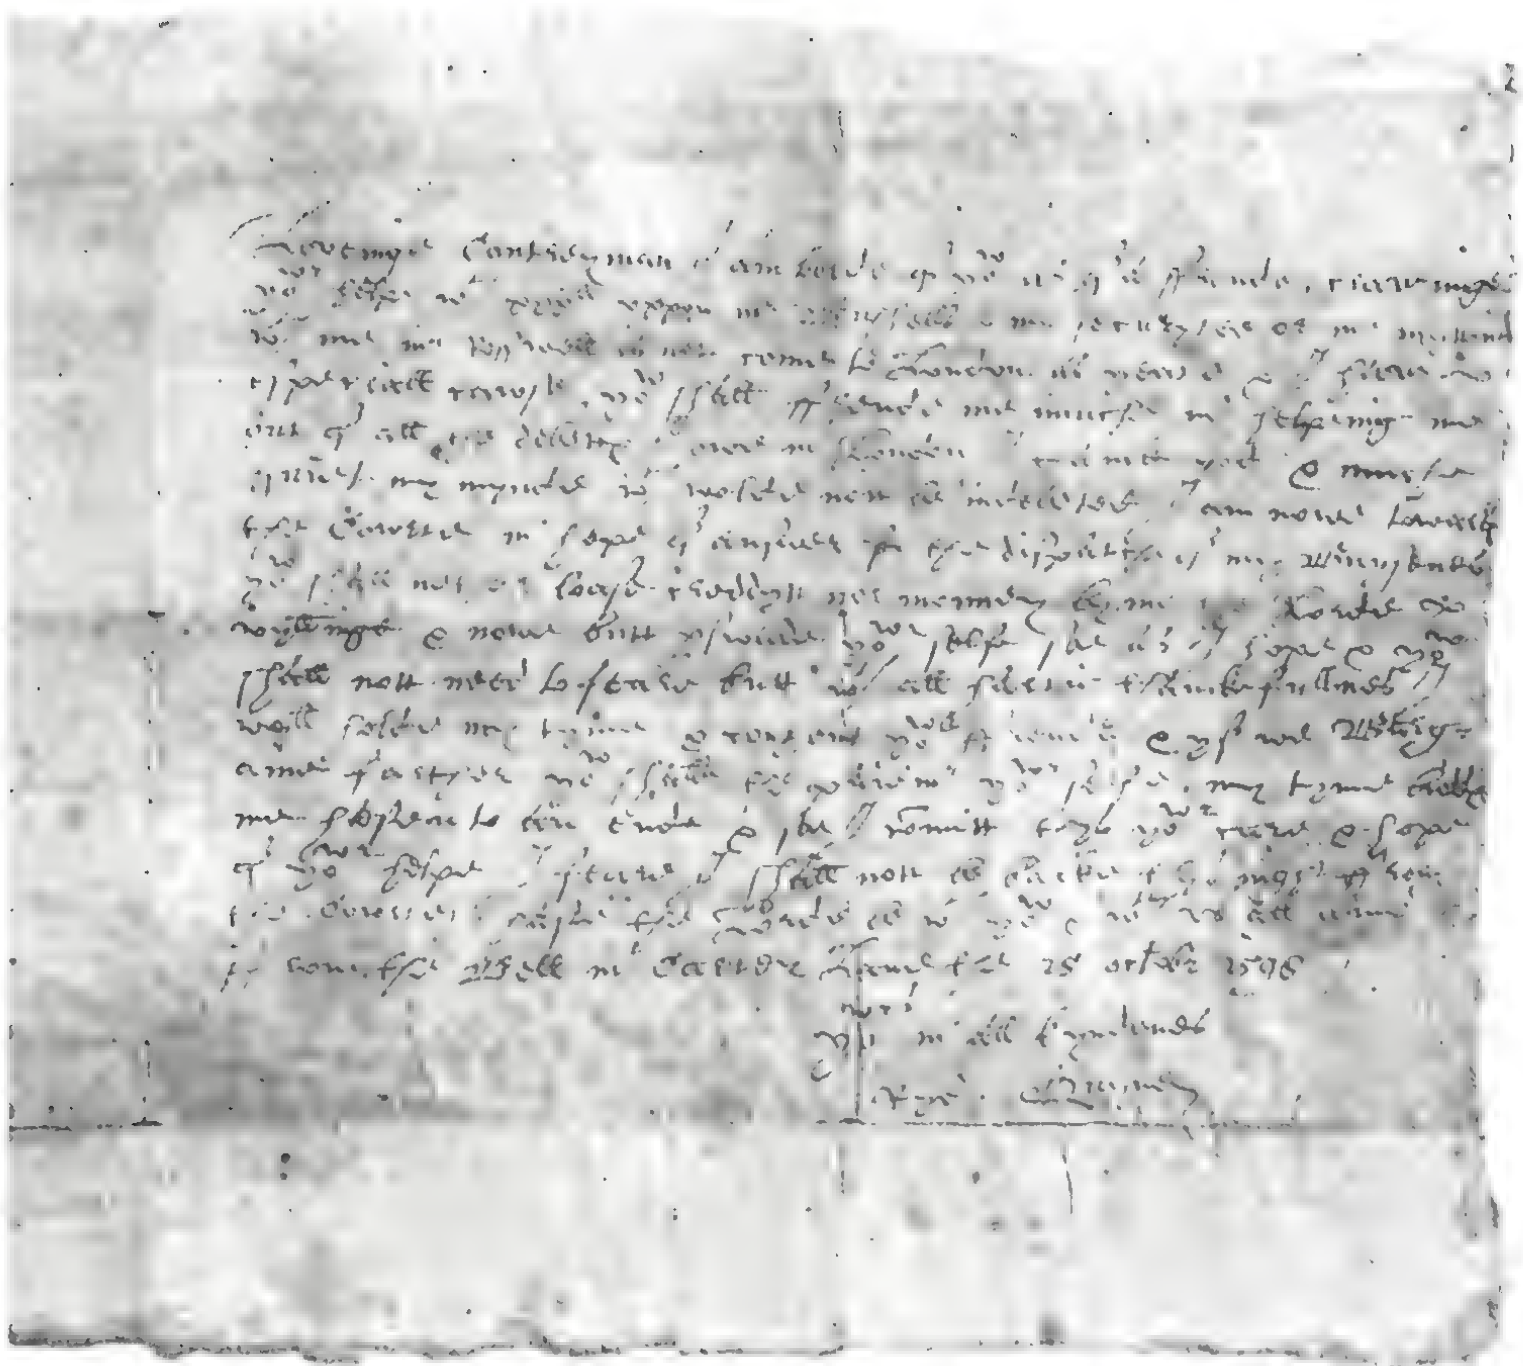 Loveinge Contreyman I am bolde of yow as of a ffrende, craveinge
yowr helpe wth xxxll vppon mr Bushells & my securytee or mr myttons
wth me mr Rosswell is nott come to London as yeate & I have
especiall cawse, yow shall ffrende me muche in helpeing me
out of all the debettes I owe in London I thancke god & muche
quiet my mynde wch wolde nott be indebeted I am nowe towardes
the Cowrte in hope of answer for the dispatche of my Buysenes
yow shall nether loase creddytt nor monney by me the Lorde
wyllinge & nowe butt perswade yowr selfe soe as I hope & yow
shall nott need to feare butt wth all hartie thanckefullnes I
wyll holde my tyme & content yowr ffrende & yf we Bargaine
farther yow shalbe the paiemr yowr selfe, my tyme biddes
me hasten to an ende & soe I comitt thys yowr care & hope
of yowr helpe I feare I shall nott be backe thys night ffrom
the Cowrte haste the Lorde be wth yow & wth vs all amen
ffrom the Bell in Carter Lane the 25 october 1598
yowrs in all kyndenes
Ryc. Quyney